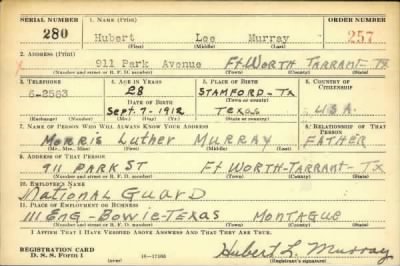 SERIAL NUMBER 1. NAME (Print) ORDER NUMBER
280 Hubert Lee Murray 257
(First) (Middle) (Last)
2. ADDRESS (Print)
911 Park Avenue Ft Worth Tarrant Tx
(Number and street or R. F. D. number) (Town) (County) (State)
3. TELEPHONE 4. AGE IN YEARS 5. PLACE OF BIRTH 6. COUNTRY OF CITIZENSHIP
6-2563 28 STAMFORD-TX
DATE OF BIRTH (Town or county)
Sept. 7-1912 Texas USA.
(Exchange) (Number) (Mo.) (Day) (Yr.) (State or country)
7. NAME OF PERSON WHO WILL ALWAYS KNOW YOUR ADDRESS 8. RELATIONSHIP OF THAT PERSON
Morris Luther MURRAY FATHER
(Mr., Mrs., Miss) (First) (Middle) (Last)
9. ADDRESS OF THAT PERSON
911 PARK ST Ft WORTH-TARRANT-TX
(Number and street or R. F. D. number) (Town) (County) (State)
10. EMPLOYER'S NAME
National GuarD
11. PLACE OF EMPLOYMENT OR BUSINESS
111 Eng-Bowie-Texas MONTAGUE
(Number and street or R. F. D. number) (Town) (County) (State)
I AFFIRM THAT I HAVE VERIFIED ABOVE ANSWERS AND THAT THEY ARE TRUE.
REGISTRATION CARD
D. S. S. Form 1 Hubert L. Murray
(Registrant's signature)